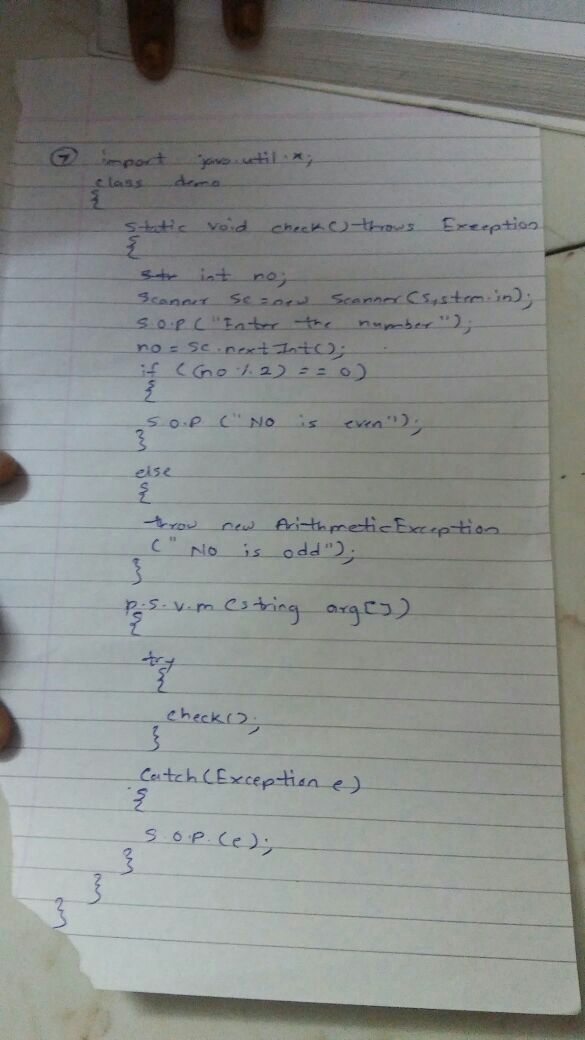 7 import java.util.*;
class demo
{
static void check() throws Exception
{
int no;
Scanner sc = new Scanner(System.in);
S.O.P("Enter the number");
no = sc.nextInt();
if ((no % 2) == 0)
{
S.O.P ("No is even");
}
else
{
throw new ArithmeticException
("No is odd");
}
p.s.v.m (string arg[])
{
try
{
check();
}
catch(Exception e)
{
S.O.P.(e);
}
}
}